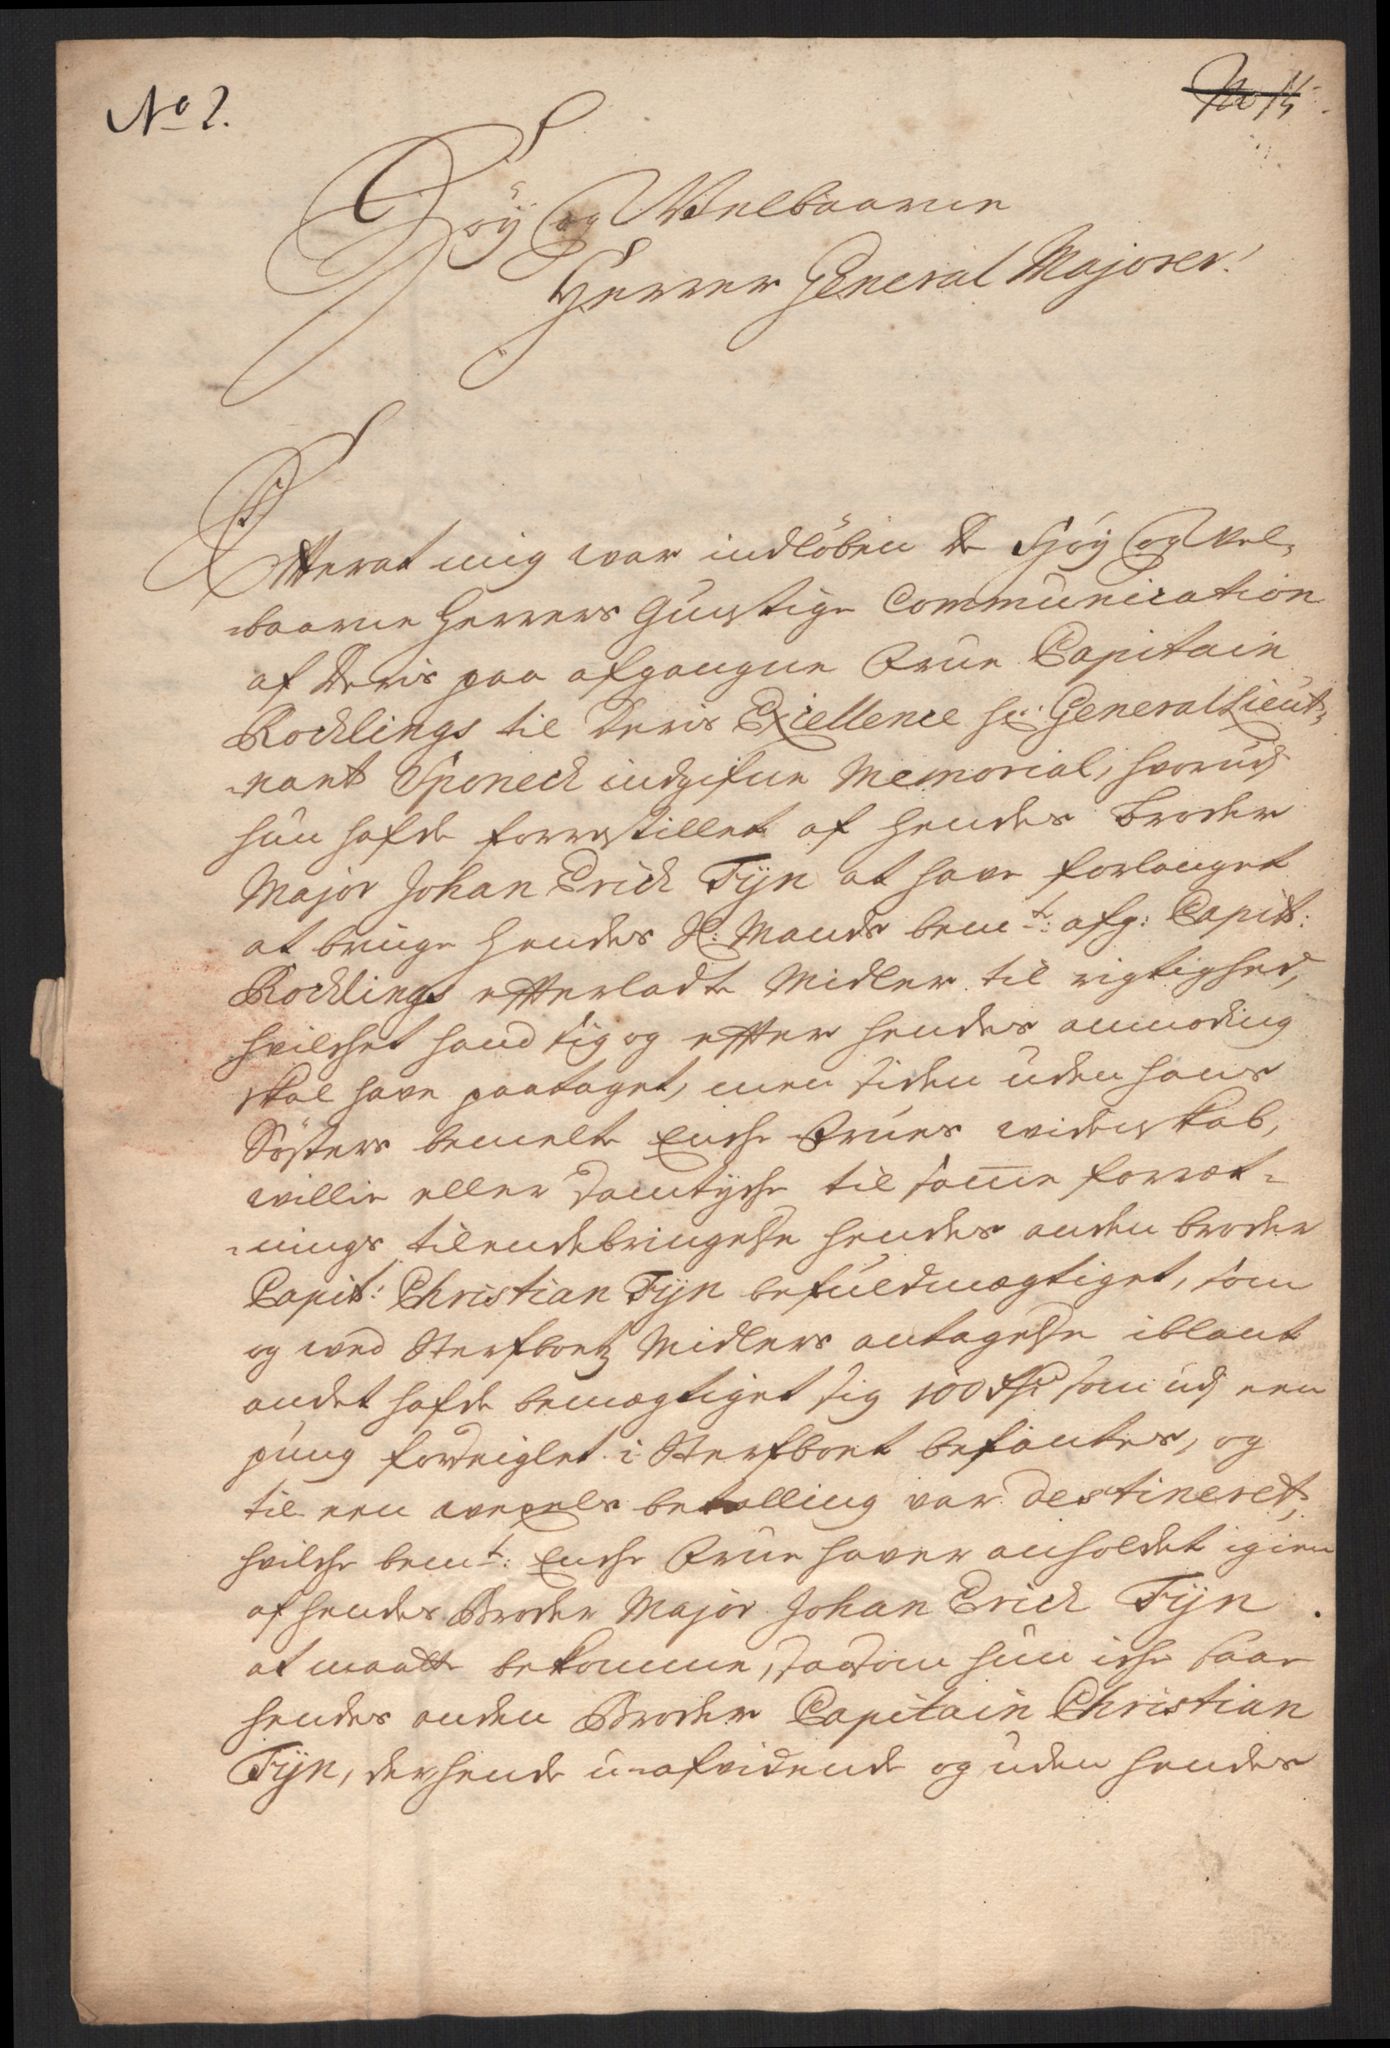 No 2.
No 14
Høÿ og Velbaarne
Herrer General Majorer!
Efterat mig war indløben De Høÿ og Vel-
baarne Herrers Gunstige Communication
af Deris paa afgangne Frue Capitain
Rochlings til Deris Excellence hr: General Lieut-
nant Sponeck indgifne Memorial, hvorudj
hun hafde forrestillet af hendes Broder
Major Johan Erich Tÿn at have forlanget
at bringe hendes Sl: Mands bemt: afg: Capit:
Rochlings efterladte Midler til rigtighed,
hvilchet hand sig og efter hendes anmoding
skal have paataget, men siden uden hans
Søsters bemelte Enche Frues widenskab,
willie eller Samtyche til same forret-
nings tilendebringelse hendes anden broder
Capit: Christian Tÿn befuldmægtiget, som
og wed Sterfboetz Midlers antagelse iblant
andet hafde bemægtiget sig 100 som udj een
pung forseiglet i Sterfboet befantes, og
til een wexels betalling var destineret,
hvilche bemt: Enche Frue haver anholdet igien
af hendes Broder Major Johan Erich Tÿn
at maatte bekomme, saasom hun iche saae
hendes anden Broder Capitain Christian
Tÿn, der hende u-afvidende og uden hendes